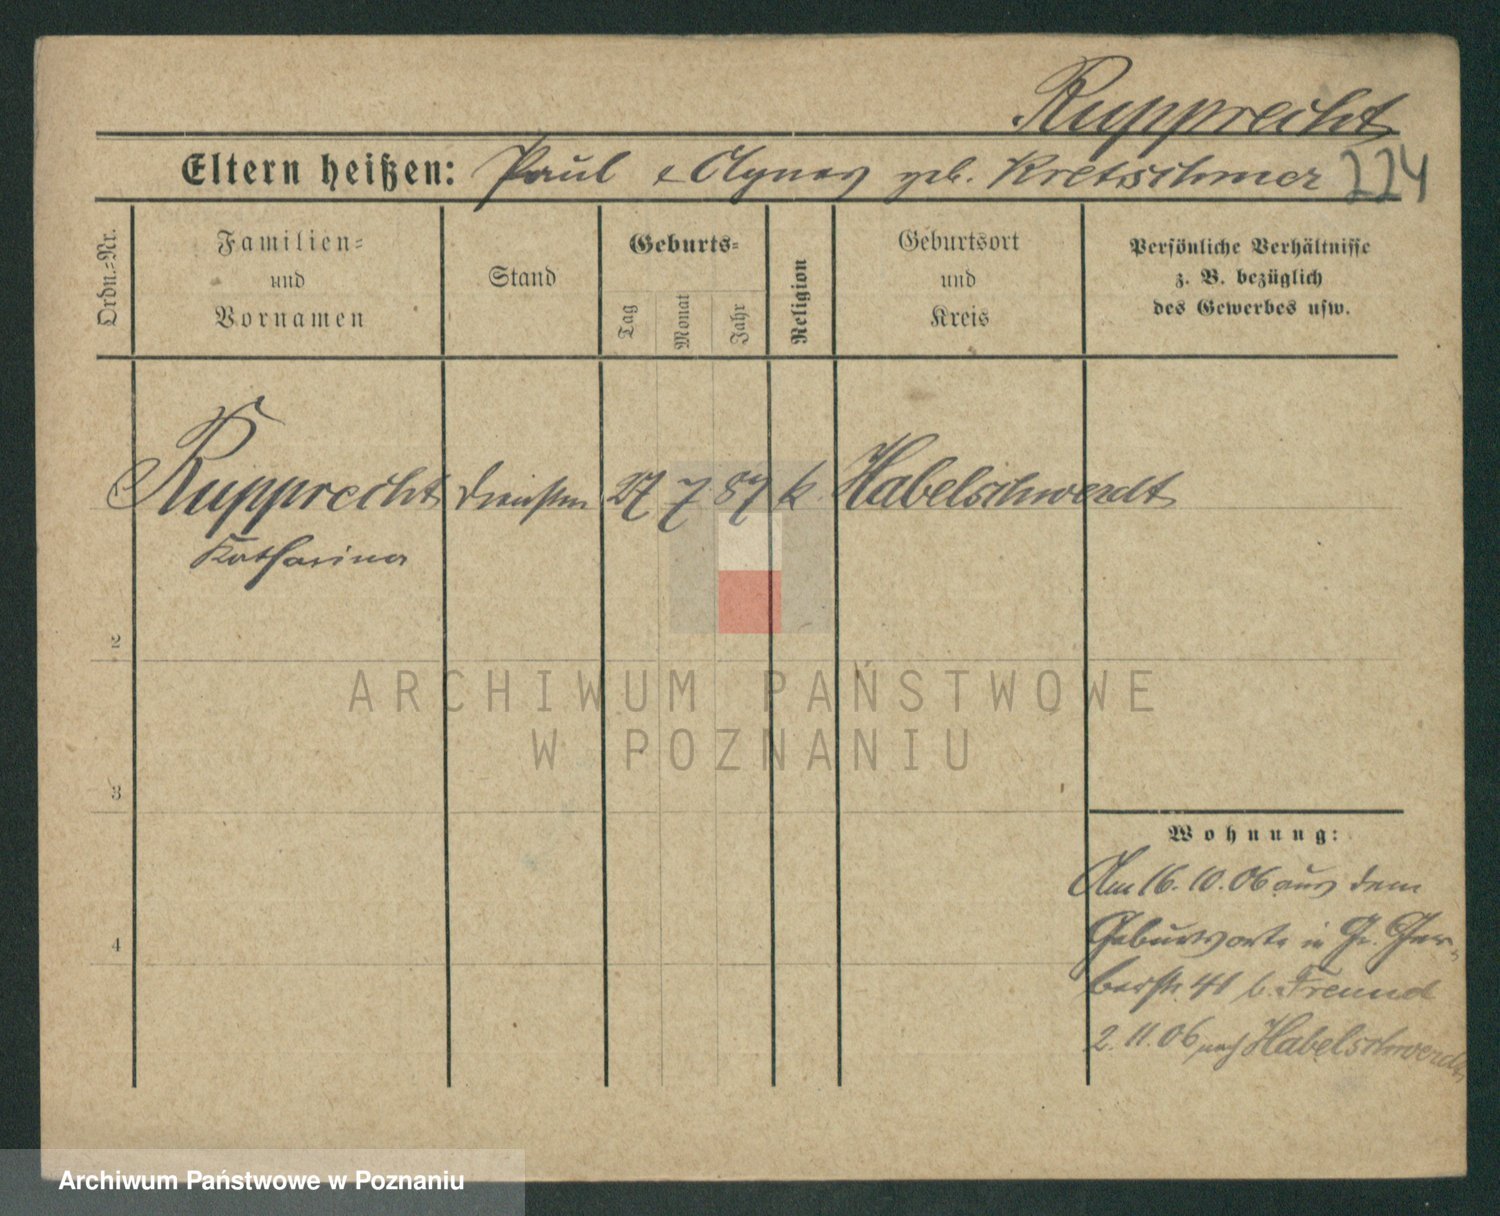 Rupprecht
Eltern heißen: Paul & Agnes geb. Kretschmer 224
Ordn.-Nr.
Familien-
und
Vornamen
Stand
Geburts-
Tag
Monat
Jahr
Religion
Geburtsort
und
Kreis
Persönliche Verhältnisse
z. B. bezüglich
des Gewerbes usw.
1 Rupprecht 27 7 87 k Habelschwerdt
Katharina
2
3
4
Wohnung:
Am 16. 10. 06 aus dem
Geburtsorte in Gr. Ger-
berstr. 41 b. Freund
2. 11. 06 nach Habelschwerdt
ARCHIWUM PAŃSTWOWE
W POZNANIU
Archiwum Państwowe w Poznaniu